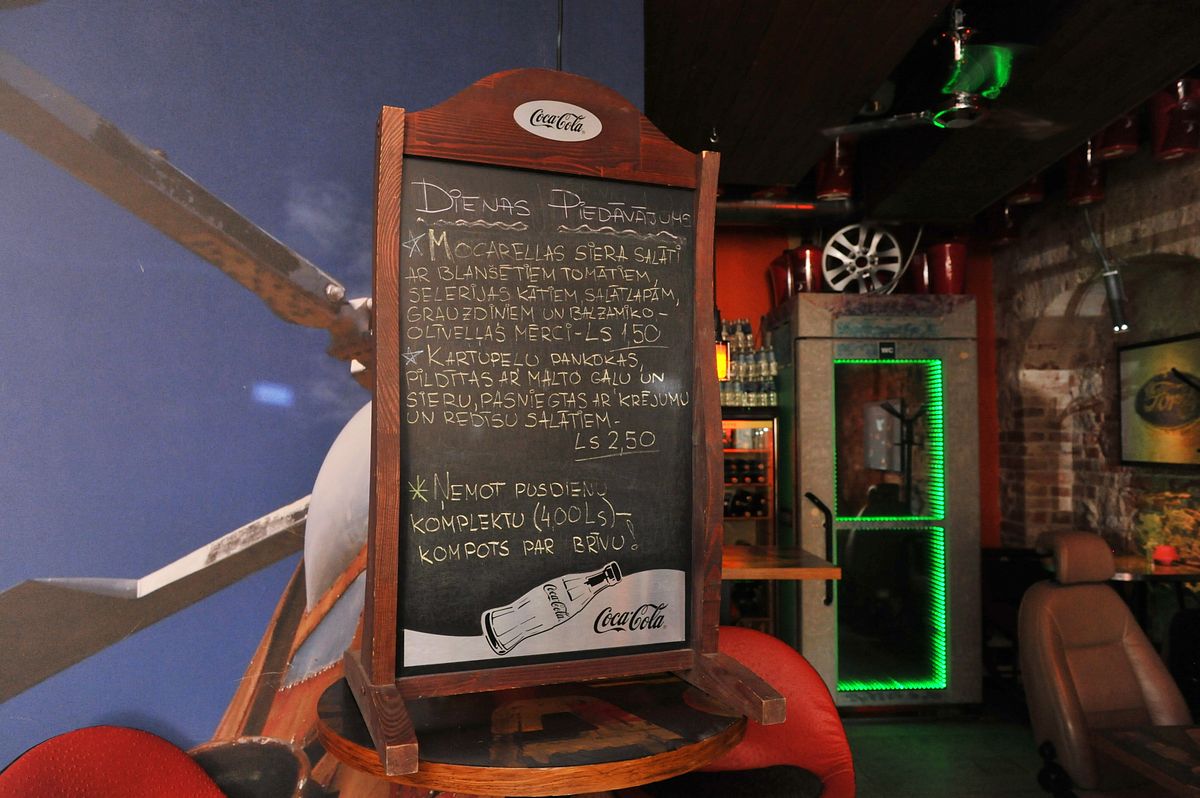 Coca-Cola
DIENAS PIEDĀVĀJUMS
MOCARELLAS SIERA SALĀTI
AR BLANŠĒTIEM TOMĀTIEM,
SELERIJAS KĀTIEM, SALĀTLAPĀM,
GRAUZDIŅIEM UN BALZAMIKO-
OLĪVEĻĻAS MĒRCI - Ls 1,50
KARTUPEĻU PANKŪKAS,
PILDĪTAS AR MALTO GAĻU UN
SIERU, PASNIEGTAS AR KRĒJUMU
UN REDĪSU SALĀTIEM -
Ls 2,50
ŅEMOT PUSDIENU
KOMPLEKTU (4,00 Ls) -
KOMPOTS PAR BRĪVU!
Coca-Cola
Coca-Cola
WC
Ford